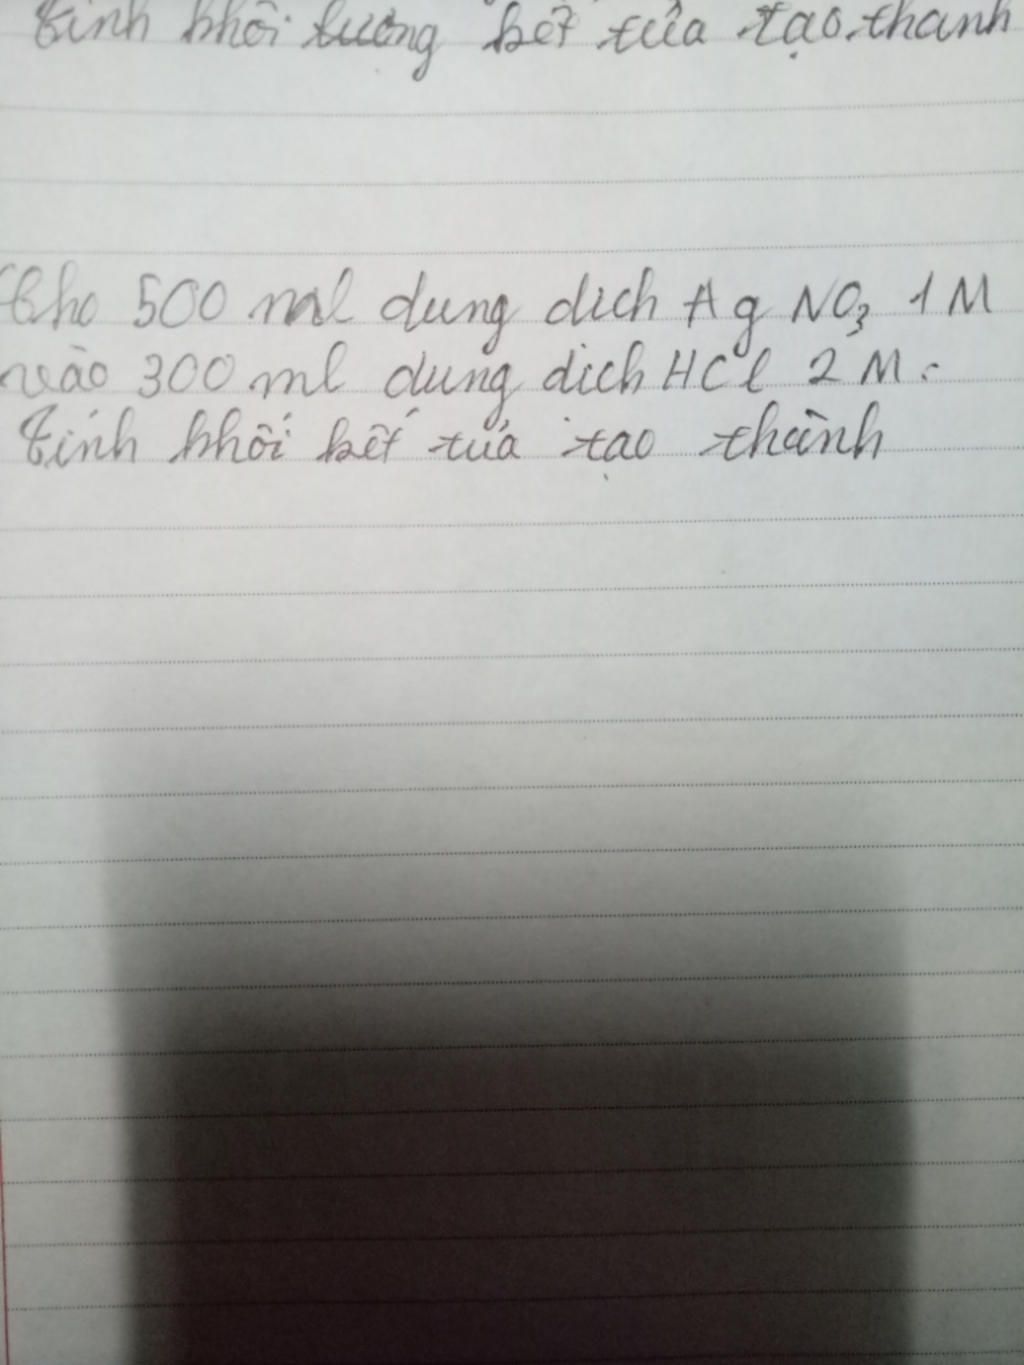 tính khối lượng kết tủa tạo thành
Cho 500 ml dung dich AgNO₃ 1M
vào 300 ml dung dich HCl 2M.
tính khối kết tủa tạo thành